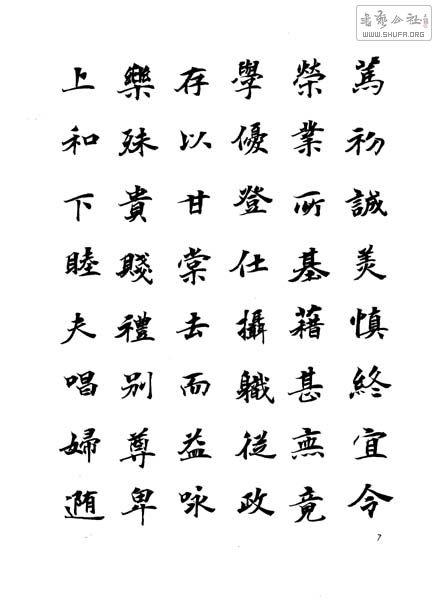 篤初誠美慎終宜令
榮業所基藉甚無竟
學優登仕攝職從政
存以甘棠去而益咏
樂殊貴賤禮別尊卑
上和下睦夫唱婦隨
7
書藝公社
WWW.SHUFA.ORG